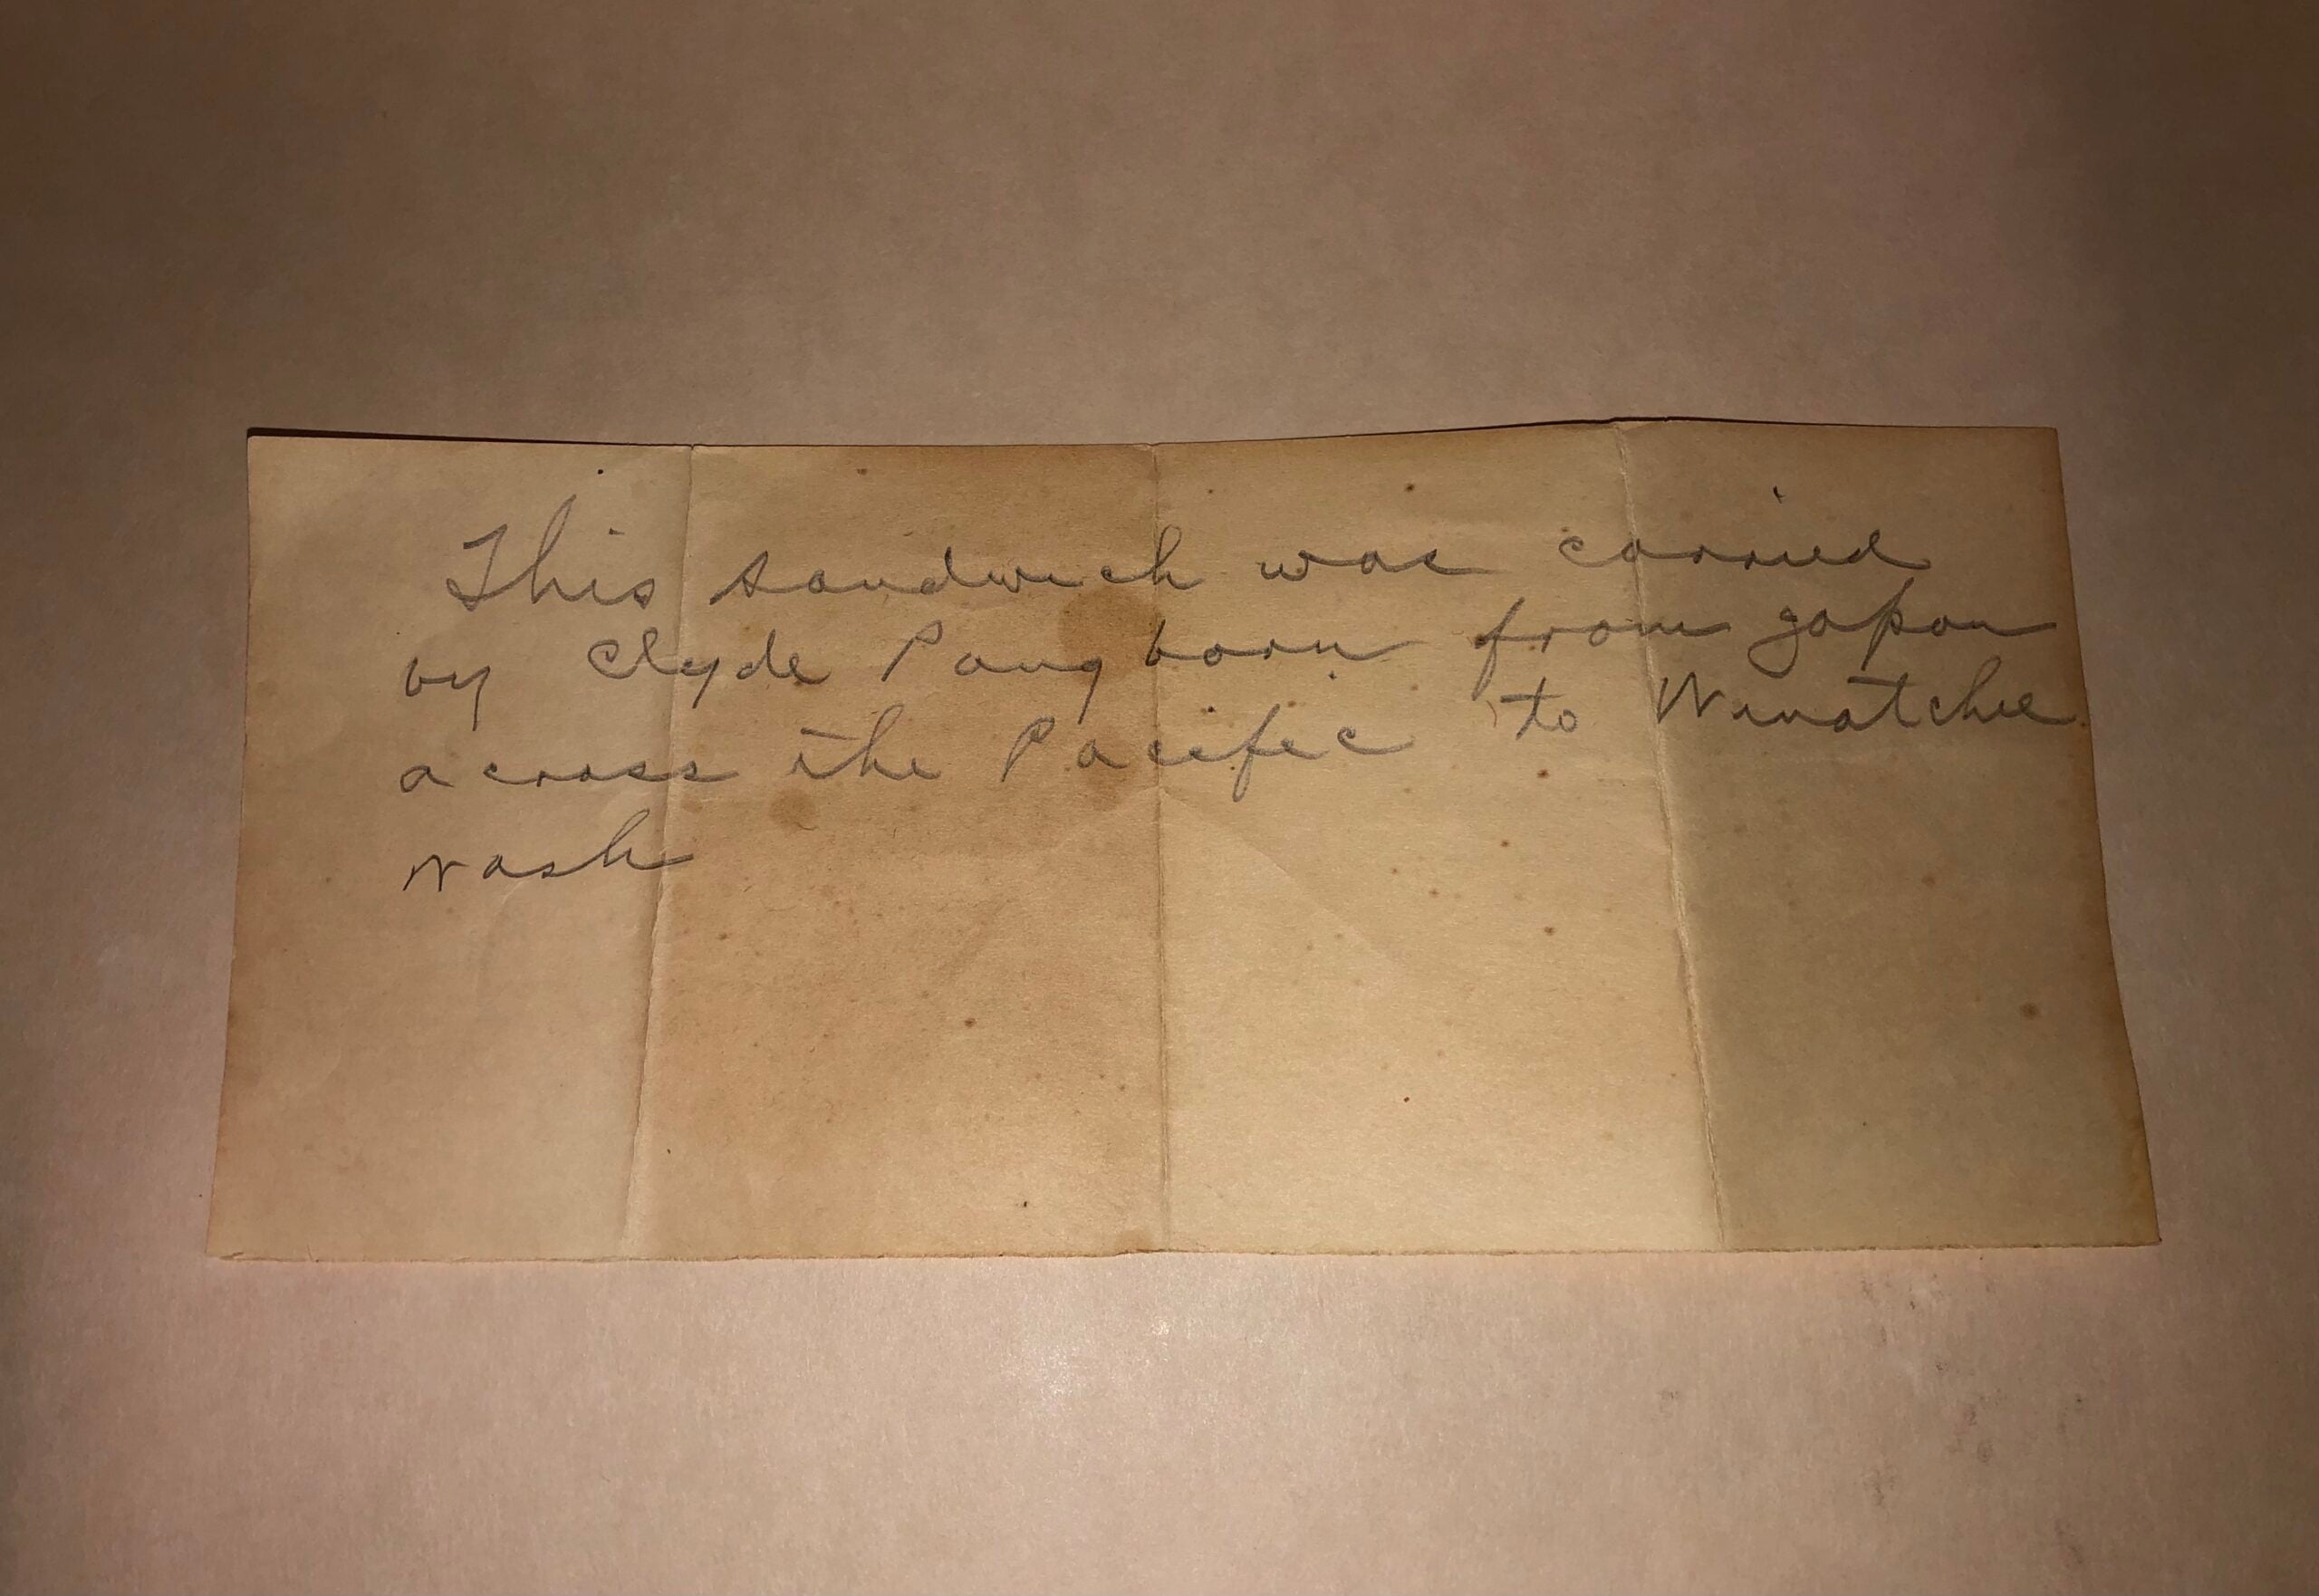 This sandwich was carried
by Clyde Pangborn from japan
across the Pacific to Wenatchee
Wash